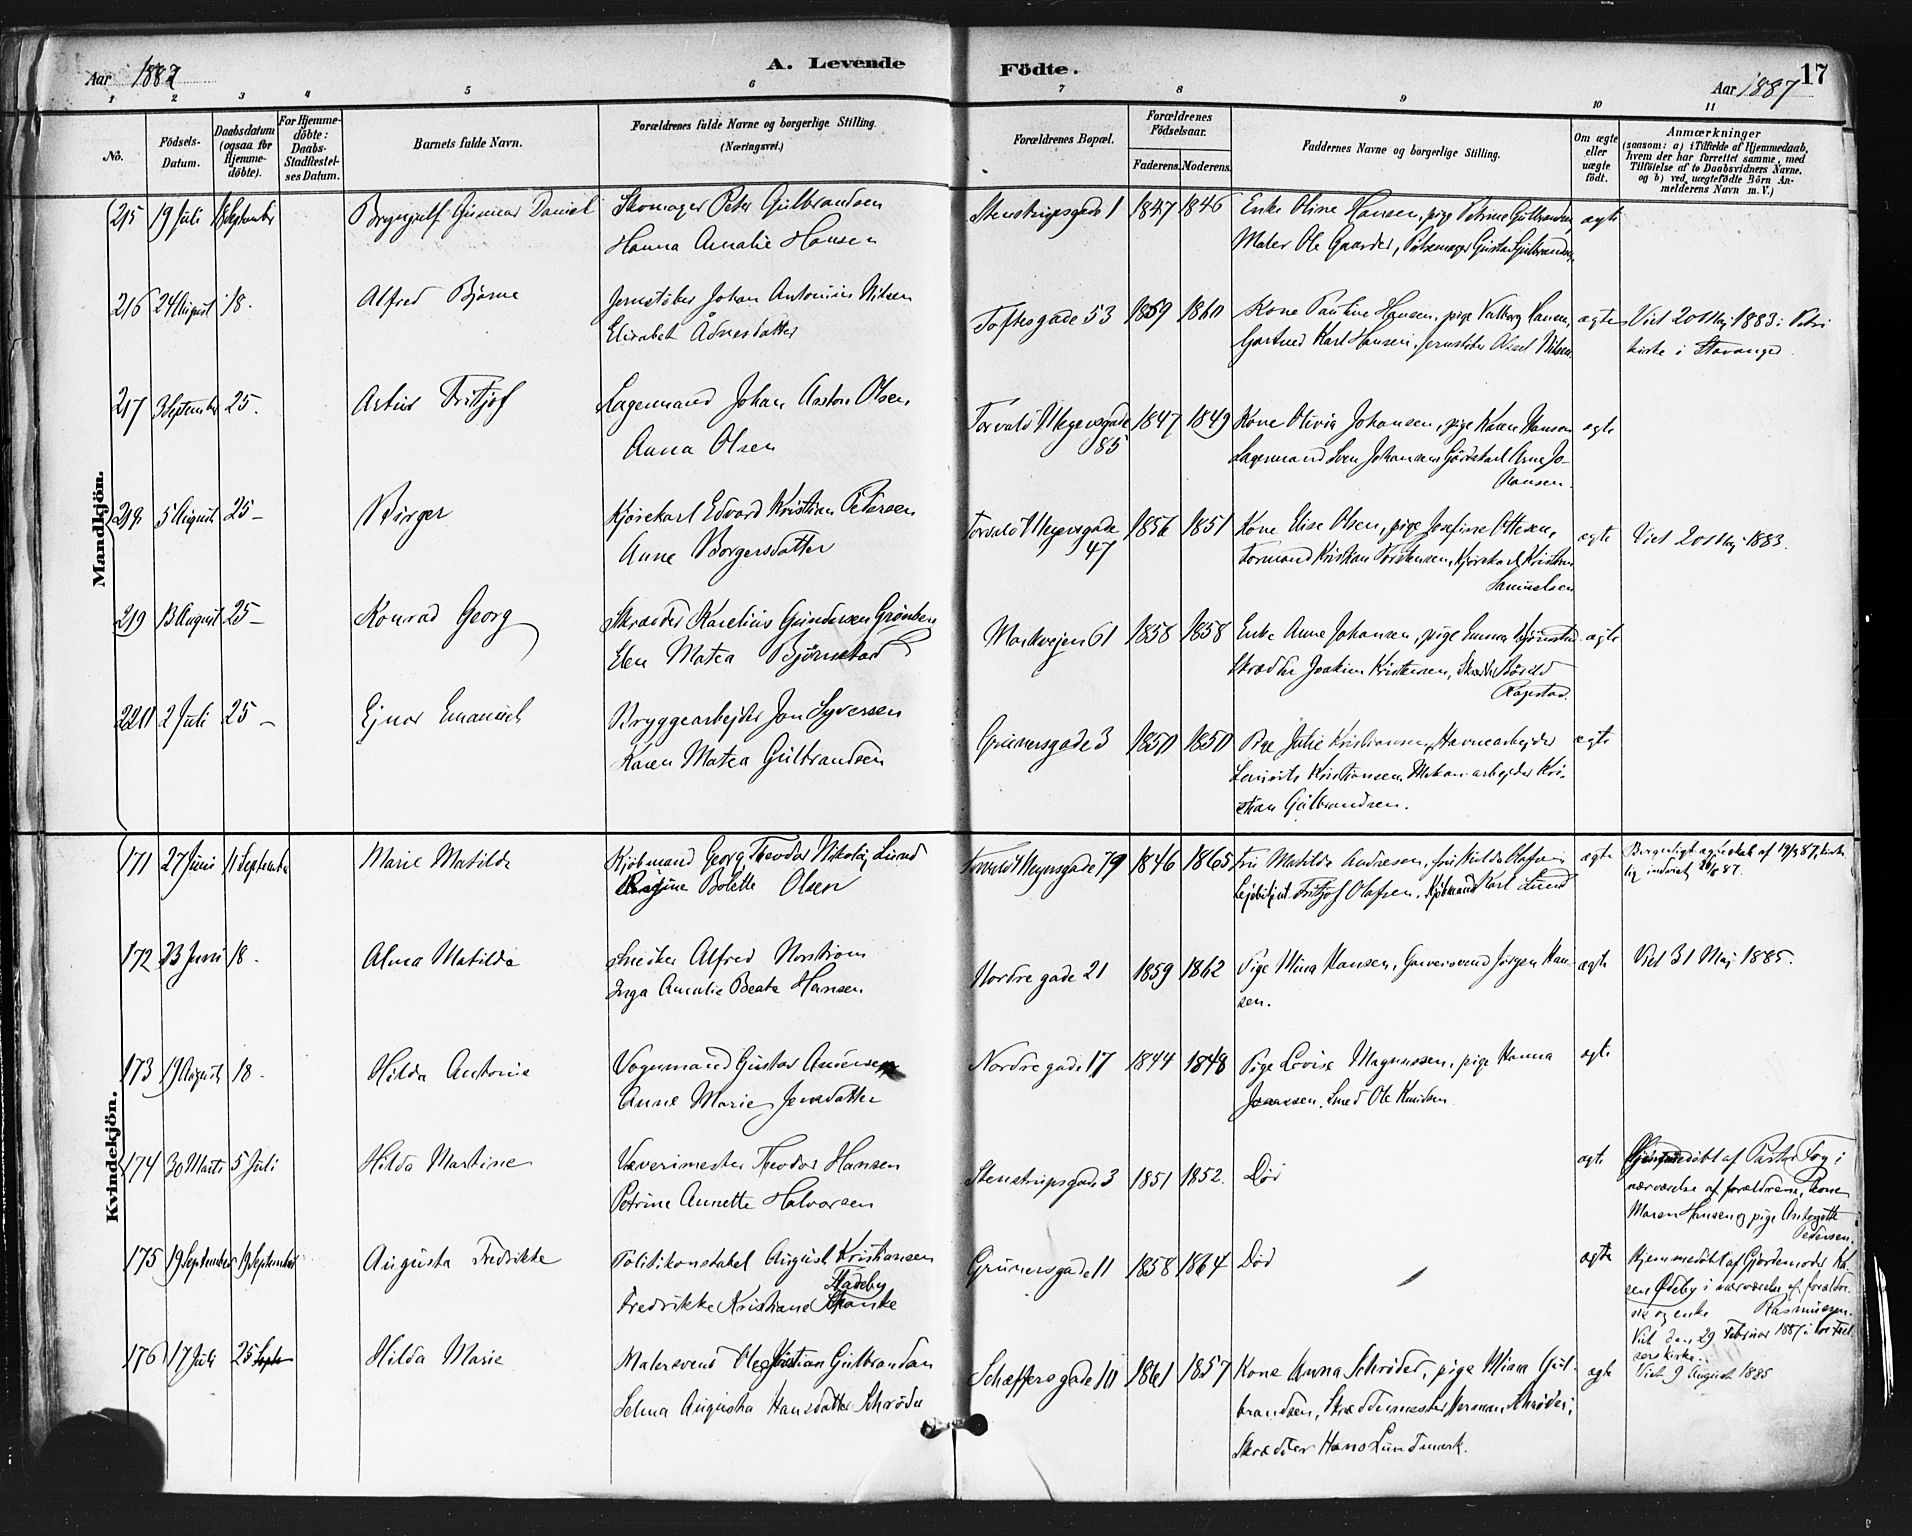 Aar 1887
A. Levende
Födte.
17
Aar 1887
1 2 3 4 5 6 7 8 9 10 11
No.
Födsels-Datum.
Daabsdatum (ogsaa for Hjemme-döbte).
For Hjemme-döbte: Daabs-Stadfæstel-ses Datum.
Barnets fulde Navn.
Forældrenes fulde Navne og borgerlige Stilling. (Næringsvei.)
Forældrenes Bopæl.
Forældrenes Födselsaar.
Faderens. Moderens.
Faddernes Navne og borgerlige Stilling.
Om ægte eller uægte födt.
Anmærkninger (saasom: a) i Tilfælde af Hjemmedaab, hvem der har forrettet samme, med Tilföielse af to Daabsvidners Navne. og b) ved uægtefödte Börn An-melderens Navn m. V.)
Mandkjön.
215 19 Juli 18 September Brynjulf Gunnar Daniel Skomager Peter Gulbrandsen Stenstrupsgade 1 1847 1846 Enke Oline Hansen, pige Petrine Gulbrandsen ægte
Hanna Amalie Hansen Maler Ole Gaarder, Pølsemager Gustav Gulbrandsen
216 24 August 18. Alfred Bjarne Jernstøber Johan Antonius Nilsen Toftesgade 53 1859 1860 Kone Pauline Hansen, pige Valborg Hansen, ægte Viet 20 Maj 1883 i Petri
Elisabet Ådnesdatter Gartner Karl Hansen, Jernstøber Aksel Nilsen kirke i Stavanger.
217 3 September 25. Artur Fritjof Lagermand Johan Anton Olsen Torvald Meyersgade 85 1847 1849 Kone Olivia Johansen, pige Karen Hansen ægte
Anna Olsen Lagermand Sven Johansen Gårdskarl Arne Jo-
hansen.
218 5 August 25 – Birger Kjørekarl Edvard Kristian Pedersen Torvald Meyersgade 47 1856 1851 Kone Elise Olsen, pige Josefine Ottesen, ægte Viet 20 Maj 1883.
Anne Borgersdatter Formand Kristian Torstensen, Kjørekarl Kristian
Samuelsen
219 13 August 25 – Konrad Georg Skrædder Karelius Gundersen Grønberg Markvejen 61 1858 1858 Enke Anne Johansen, pige Emma Bjørnstad ægte
Elen Matea Bjørnstad Skrædder Joakim Kristensen, Skrædder
Ragestad.
220 2 Juli 25 – Ejnar Emanuel Bryggearbejder Jon Syversen Grünersgade 3 1850 1850 Pige Julie Kristiansen, Havnearbejder ægte
Karen Matea Gulbrandsen Laurits Kristiansen, Mekan. arbejder Kri-
stian Gulbrandsen.
Kvindekjön.
171 27 Juni 11 September Marie Matilde Kjøbmand Georg Theodor Nikolaj Lund Torvald Meyersgade 79 1846 1865 Fru Matilde Andresen, fru Hulda Olafsen ægte Borgerligt ægteskab af 19/3 87, kirke-
Regine Bolette Olsen Fritjof Olafsen, Kjøbmand Karl Lund lig indviet 26/6 87.
172 23 Juni 18. Alma Matilde Snedker Alfred Norstrøm Nordregade 21 1859 1862 Pige Mina Hansen, Garversvend Jørgen Han- ægte Viet 31 Maj 1885.
Inga Amalie Beate Hansen sen.
173 19 August 18. Hilda Antonie Vognmand Gustav Andersen Nordregade 17 1844 1848 Pige Lovise Magnussen, pige Hanna ægte
Anne Marie Jensdatter Joanssen, Smed Ole Knudsen.
174 30 Marts 5 Juli Hilda Martine Væverimester Theodor Hansen Stenstrupsgade 3 1851 1852. Død ægte Hjemmedøbt af Pastor Fog i
Petrine Annette Halvorsen nærværelse af forældrene, kone
Maren Hansen og pige Antonette
Pedersen.
175 19 September 19 September Augusta Fredrikke Politikonstabel August Kristiansen Stadeby Grünersgade 11 1858 1864 Død ægte Hjemmedøbt af Gjordemoder Ka-
Fredrikke Kristiane Skanke ren Ødeby i nærværelse af foræld-
re og enke Rasmussen.
Viet den 29 Februar 1887 i Vor Frel-
serskirke.
176 17 Juli 25 Septb Hilda Marie Malersvend Ole Kristian Gulbrandsen Schæffersgade 10 1861 1857 Kone Anna Schrøder, pige Mina Gul- ægte Viet 9 August 1885
Selma Augusta Hansdatter Schrøder brandsen, Skræddermester Herman Schrøder,
Skrædder Hans Lundmark.